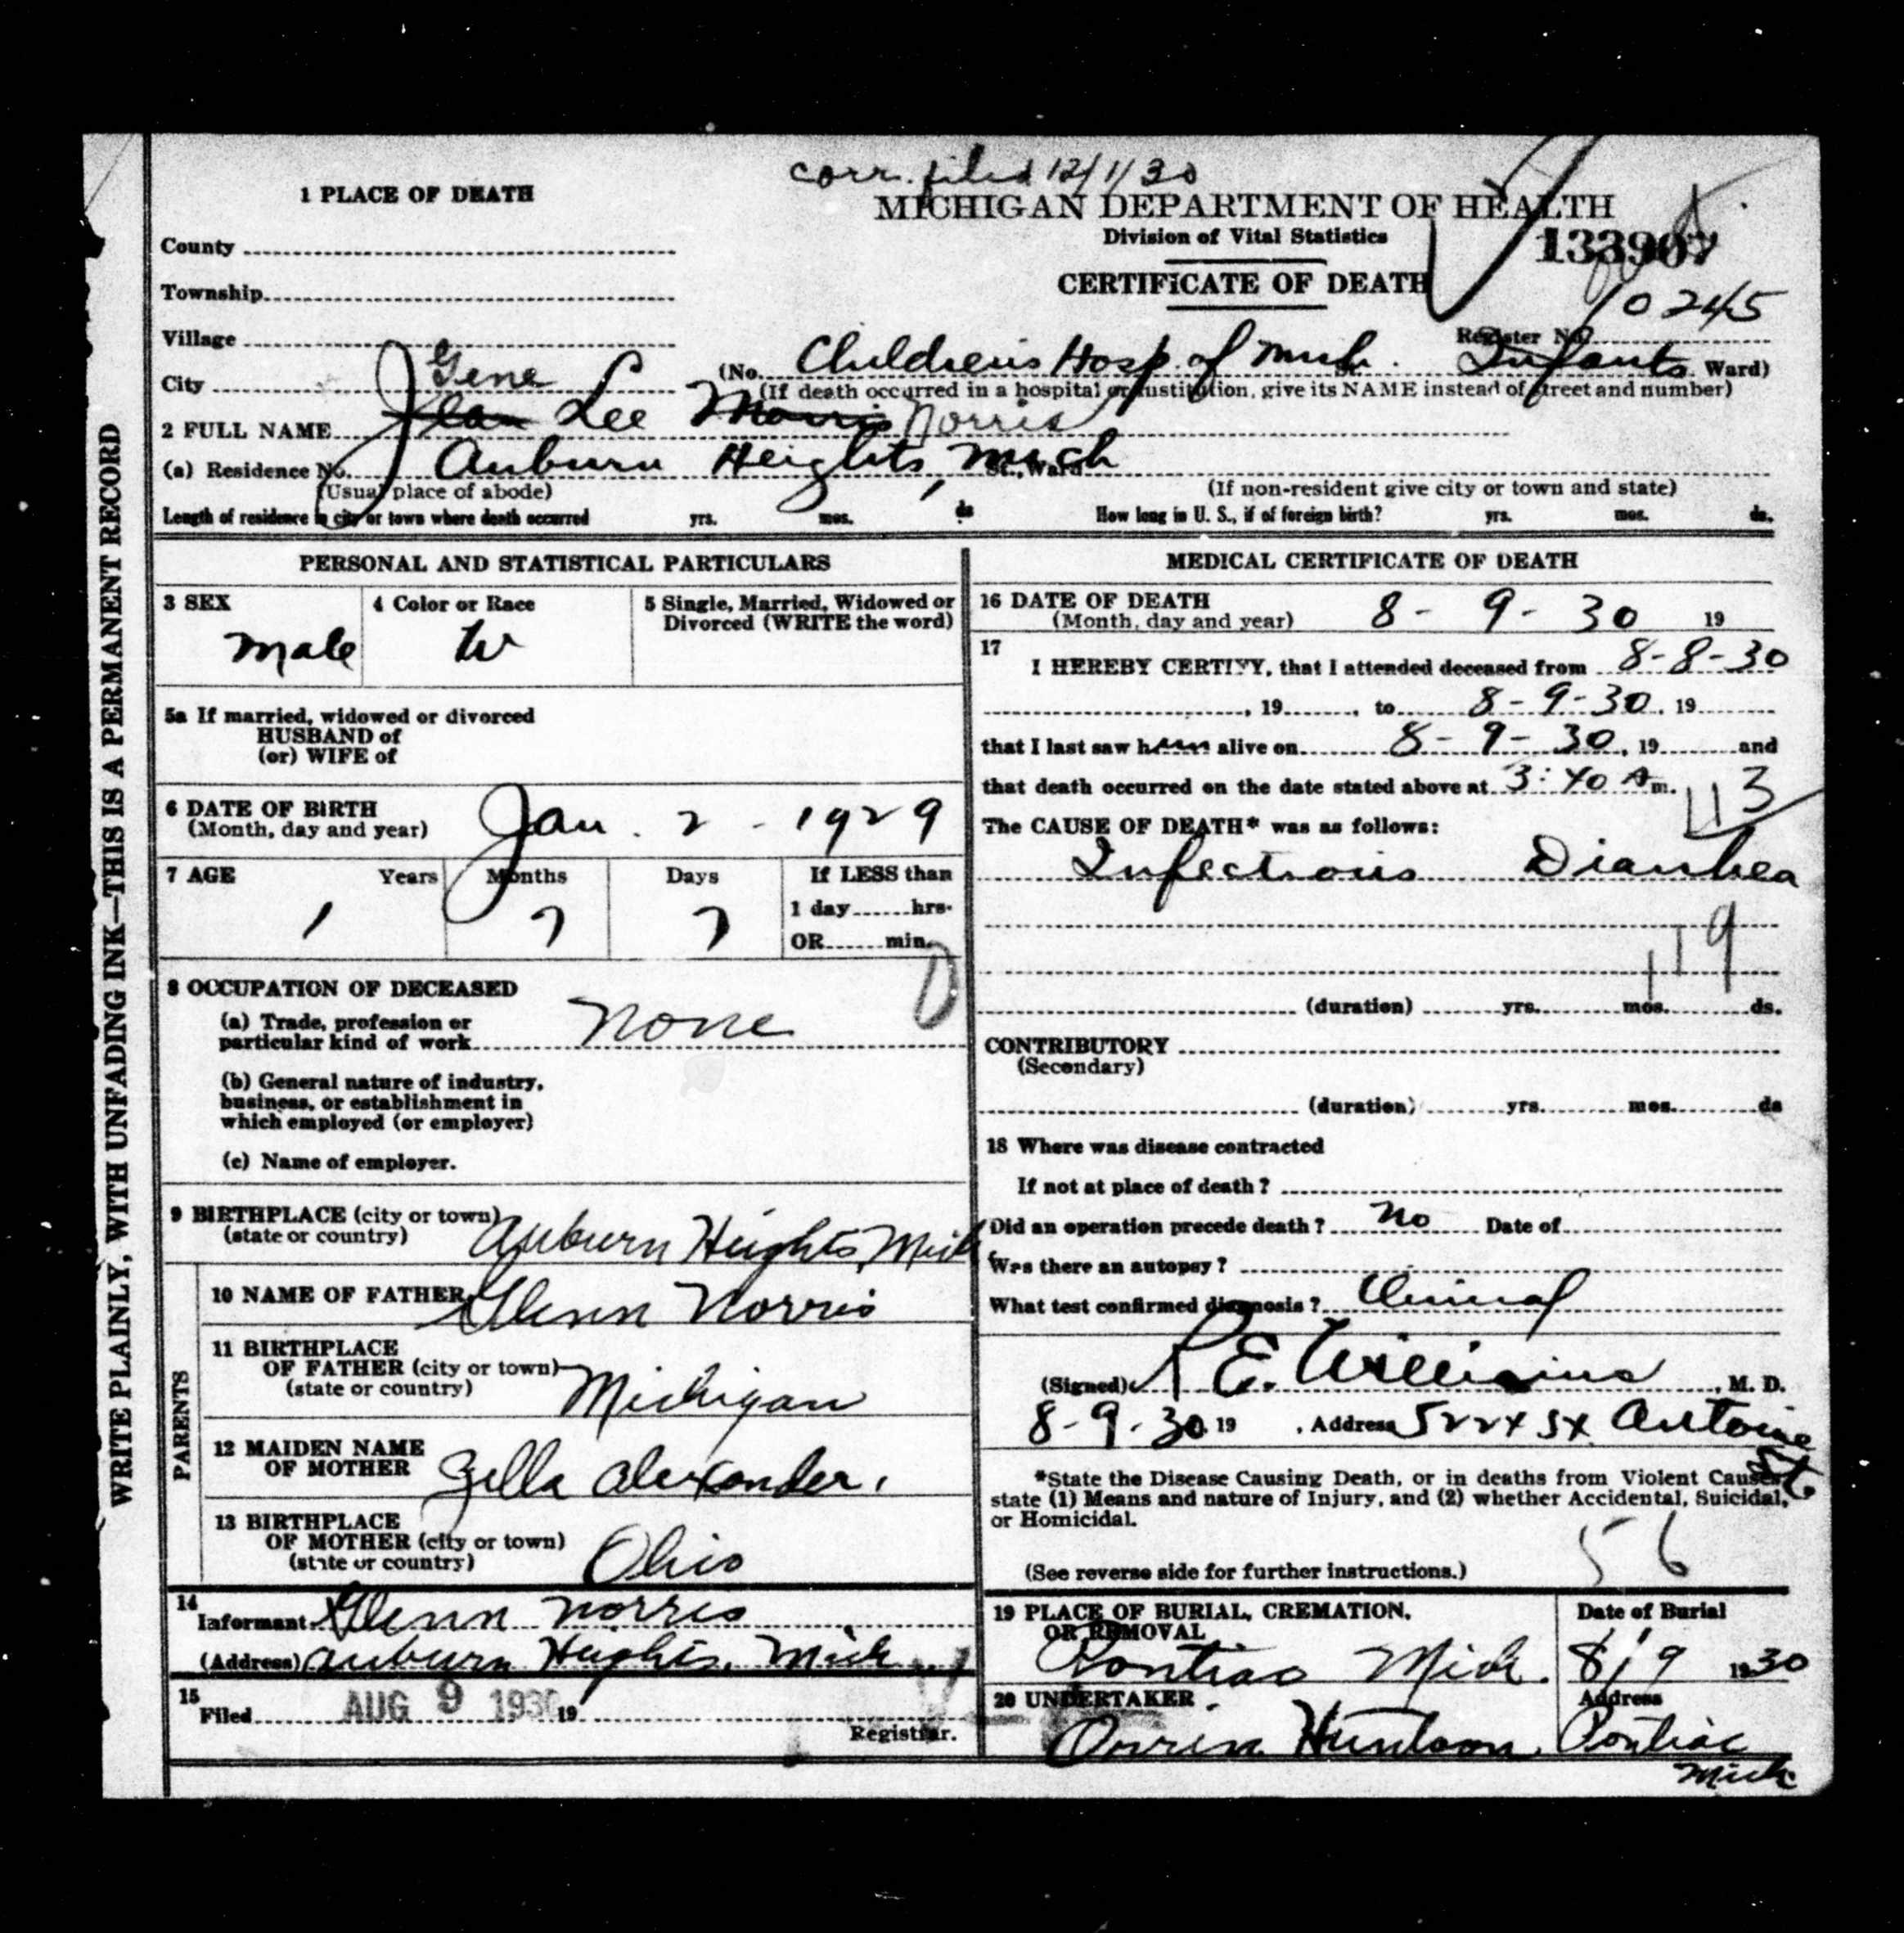 corr. filed 12/1/30
1 PLACE OF DEATH
MICHIGAN DEPARTMENT OF HEALTH
Division of Vital Statistics
133907
CERTIFICATE OF DEATH
10245
County
Township
Village
Register No.
City
(No. Childrens Hosp. of Mich. Infants Ward)
(If death occurred in a hospital or institution, give its NAME instead of street and number)
Gene
2 FULL NAME Jean Lee Morris Norris
(a) Residence No. Auburn Heights, Mich St., Ward
(Usual place of abode)
(If non-resident give city or town and state)
Length of residence in city or town where death occurred yrs. mos. ds
How long in U. S., if of foreign birth? yrs. mos. ds.
WRITE PLAINLY, WITH UNFADING INK—THIS IS A PERMANENT RECORD
PERSONAL AND STATISTICAL PARTICULARS
3 SEX
male
4 Color or Race
W
5 Single, Married, Widowed or
Divorced (WRITE the word)
5a If married, widowed or divorced
HUSBAND of
(or) WIFE of
6 DATE OF BIRTH
(Month, day and year) Jan. 2 - 1929
7 AGE Years Months Days If LESS than
1 day hrs.
1 7 7
OR min.
8 OCCUPATION OF DECEASED
(a) Trade, profession or
particular kind of work none
(b) General nature of industry,
business, or establishment in
which employed (or employer)
(c) Name of employer.
9 BIRTHPLACE (city or town)
(state or country) Auburn Heights, Mich
PARENTS
10 NAME OF FATHER Glenn Norris
11 BIRTHPLACE
OF FATHER (city or town)
(state or country) Michigan
12 MAIDEN NAME
OF MOTHER Zella Alexander.
13 BIRTHPLACE
OF MOTHER (city or town)
(state or country) Ohio
14
Informant Glenn Norris
(Address) Auburn Heights, Mich
15
Filed AUG 9 1930 19
Registrar.
MEDICAL CERTIFICATE OF DEATH
16 DATE OF DEATH
(Month, day and year) 8 - 9 - 30 19
17
I HEREBY CERTIFY, that I attended deceased from 8-8-30
, 19 , to 8-9-30, 19
that I last saw him alive on 8-9-30, 19 and
that death occurred on the date stated above at 3:40 A m.
113
The CAUSE OF DEATH* was as follows:
Infectious Diarrhea
119
(duration) yrs. mos. ds.
CONTRIBUTORY
(Secondary)
(duration) yrs. mos. ds
18 Where was disease contracted
If not at place of death?
Did an operation precede death? no Date of
Was there an autopsy?
What test confirmed diagnosis? Clinical
(Signed) R E. Williams, M. D.
8-9-30 19 , Address 5224 St. Antoine
St.
*State the Disease Causing Death, or in deaths from Violent Causes
state (1) Means and nature of Injury, and (2) whether Accidental, Suicidal,
or Homicidal.
56
(See reverse side for further instructions.)
19 PLACE OF BURIAL, CREMATION,
OR REMOVAL
Pontiac Mich.
Date of Burial
8/9 1930
20 UNDERTAKER
Address
Orrin Huntoon Pontiac
Mich